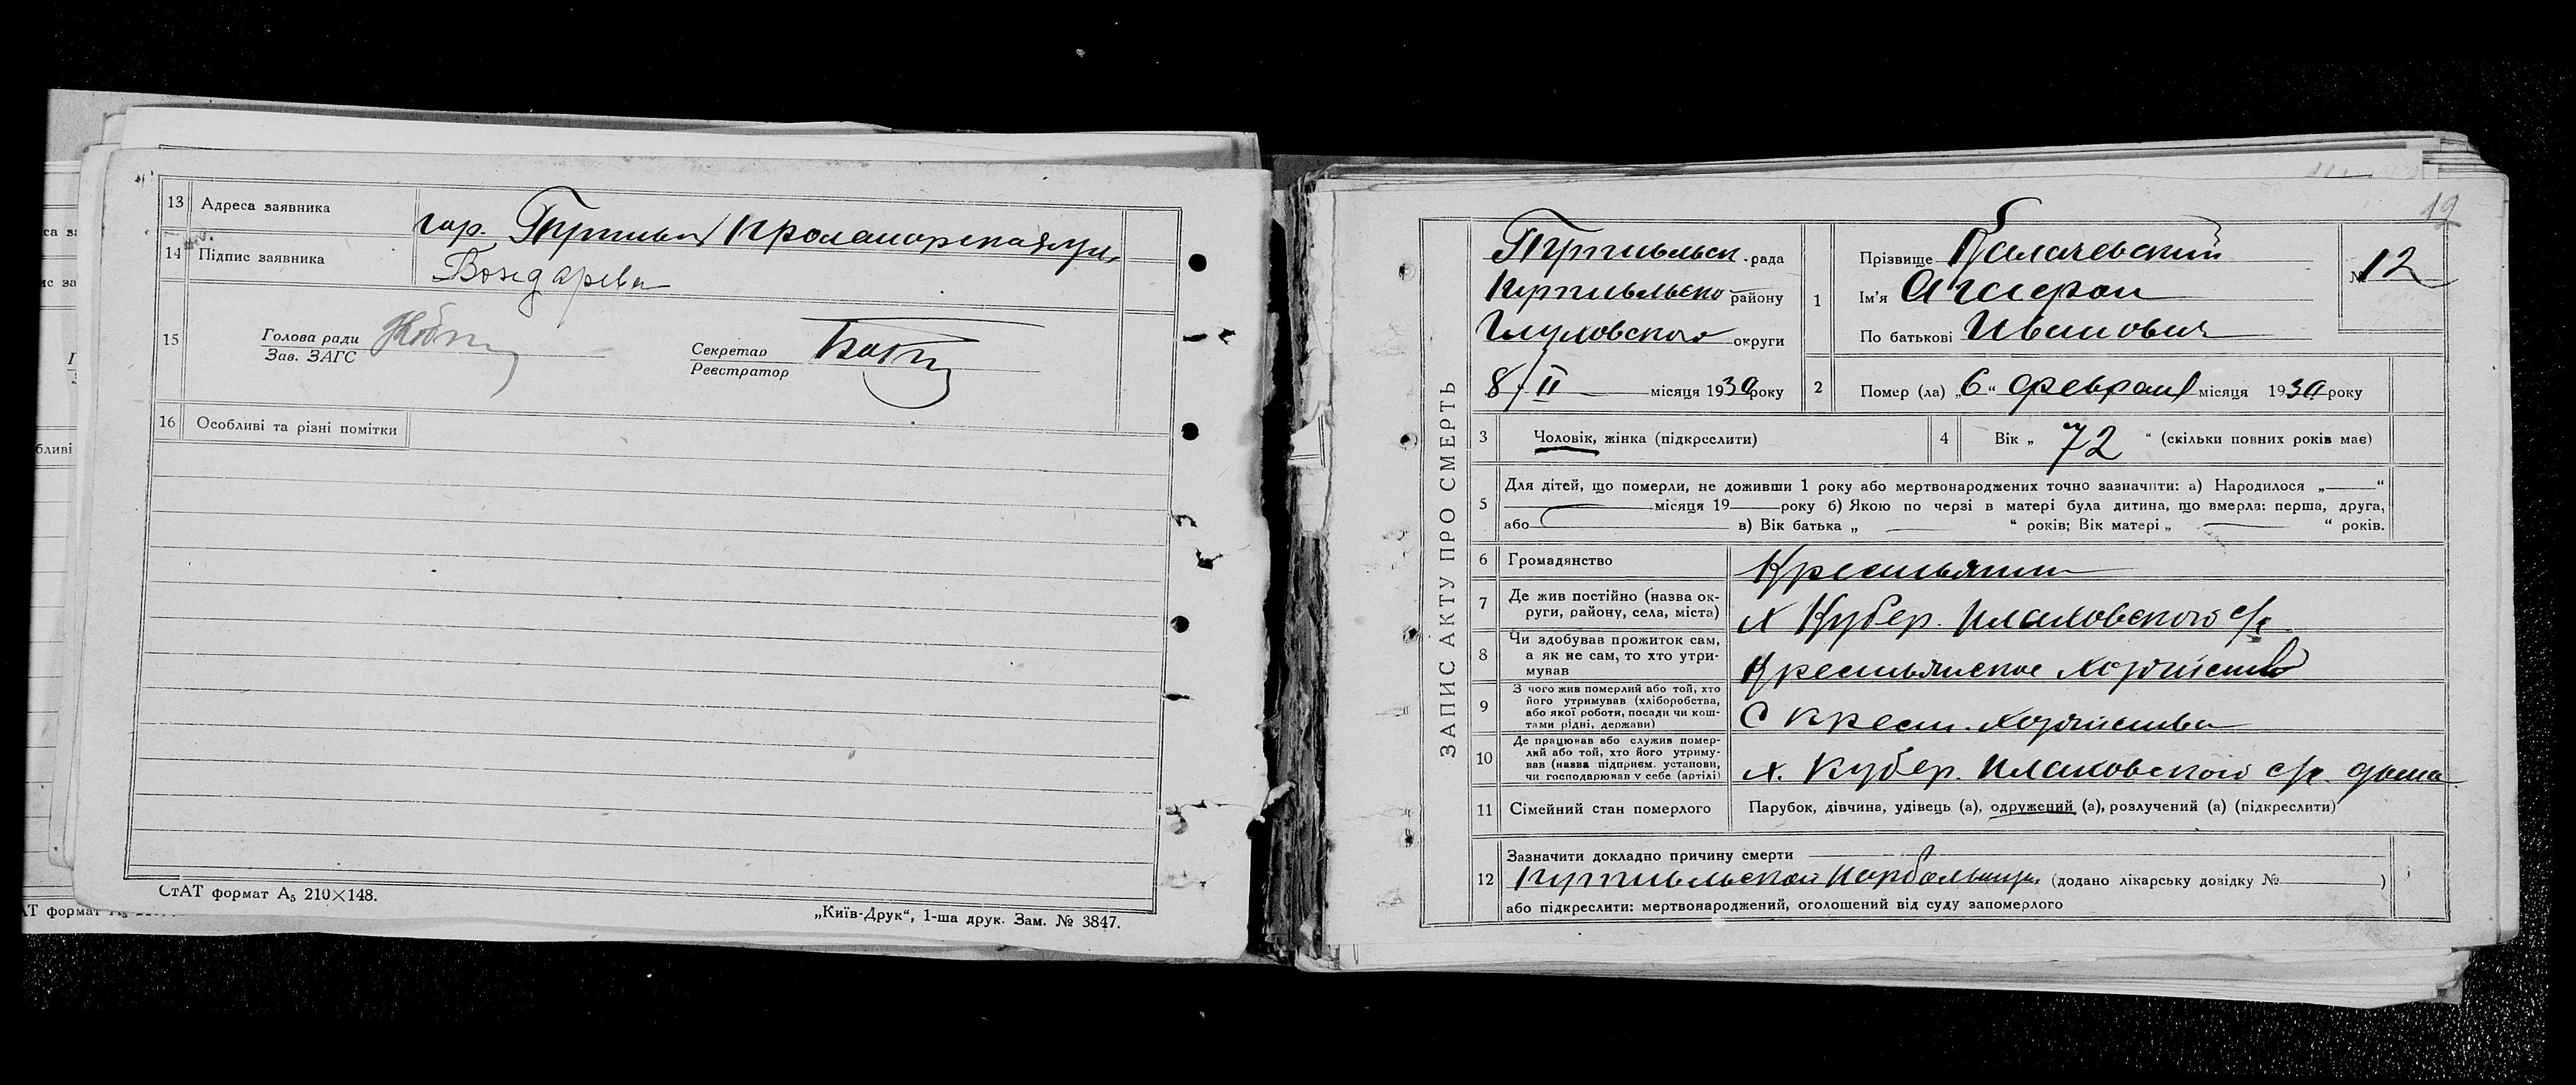 13 Адреса заявника гор. Путивль Пролетарская ул.
14 Підпис заявника Бондарева
15 Голова ради
Зав. ЗАГС
Секретар
Реєстратор
16 Особливі та різні помітки
СтАТ формат А₅ 210×148.
„Київ-Друк“, 1-ша друк. Зам. № 3847.
19
ЗАПИС АКТУ ПРО СМЕРТЬ
Путивльск. рада
Путивльско району
Глуховского округи
8/II місяця 1930 року
1 Прізвище Калачевский
Ім'я
По батькові Иванович
№ 12
2 Помер (ла) „6“ февраля місяця 1930 року
3 Чоловік, жінка (підкреслити)
4 Вік „72“ (скільки повних років має)
5 Для дітей, що померли, не доживши 1 року або мертвонароджених точно зазначити: а) Народилося „ “
місяця 19 року б) Якою по черзі в матері була дитина, що вмерла: перша, друга,
або в) Вік батька „ “ років; Вік матері „ “ років.
6 Громадянство Крестьянин
7 Де жив постійно (назва ок-
руги, району, села, міста) х Кубер. с/с
8 Чи здобував прожиток сам,
а як не сам, то хто утри-
мував Крестьянское хозяйство
9 З чого жив померлий або той, хто
його утримував (хліборобства,
або якої роботи, посади чи кош-
тами рідні, держави) С крест. хозяйства
10 Де працював або служив помер-
лий або той, хто його утриму-
вав (назва підприєм. установи,
чи господарював у себе (артілі) х. Кубер. с/с дома
11 Сімейний стан померлого Парубок, дівчина, удівець (а), одружений (а), розлучений (а) (підкреслити)
12 Зазначити докладно причину смерти
Путивльской (додано лікарську довідку № )
або підкреслити: мертвонароджений, оголошений від суду запомерлого